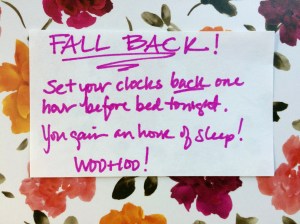 FALL BACK!
Set your clocks back one
hour before bed tonight.
You gain an hour of sleep!
WOOHOO!